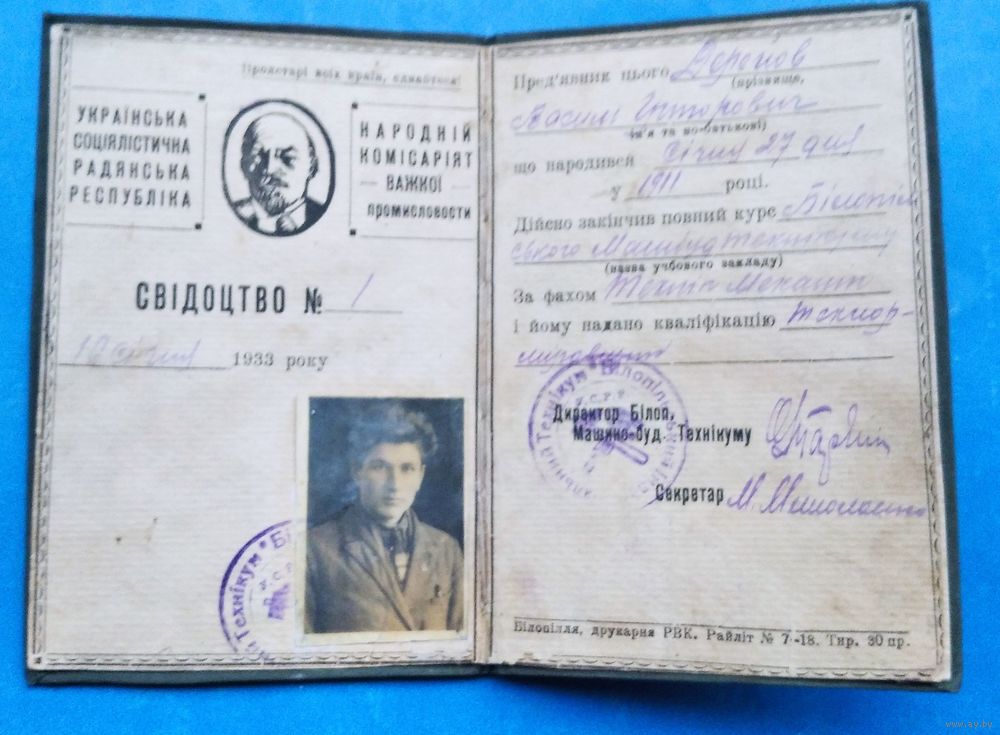 Пролетарі всіх країн, єднайтеся!
УКРАЇНСЬКА
СОЦІЯЛІСТИЧНА
РАДЯНСЬКА
РЕСПУБЛІКА
НАРОДНІЙ
КОМІСАРІЯТ
ВАЖКОЇ
промисловости
СВІДОЦТВО № 1
10 січня 1933 року
Технікум * Біл
Пред'явник цього Доронов
(прізвище,
Вікторович
ім'я та по-батькові)
що народивсй Січня 27 дня
у 1911 році.
Дійсно закінчив повний курс Білопіль
ського Машбудтехнікуму
(назва учбового закладу)
За фахом Технік Механік
і йому надано кваліфікацію
Технікум * Білопільський
У.С.Р.Р.
Директор Білоп,
Машино-буд. Технікуму
Секретар М.
Білопілля, друкарня РВК. Райліт № 7-18. Тир. 30 пр.
www.ay.by